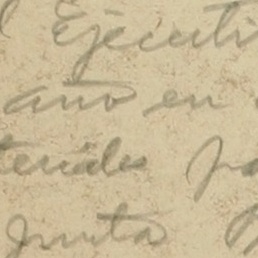 Ejecuti
año en
teriales pa
Junta